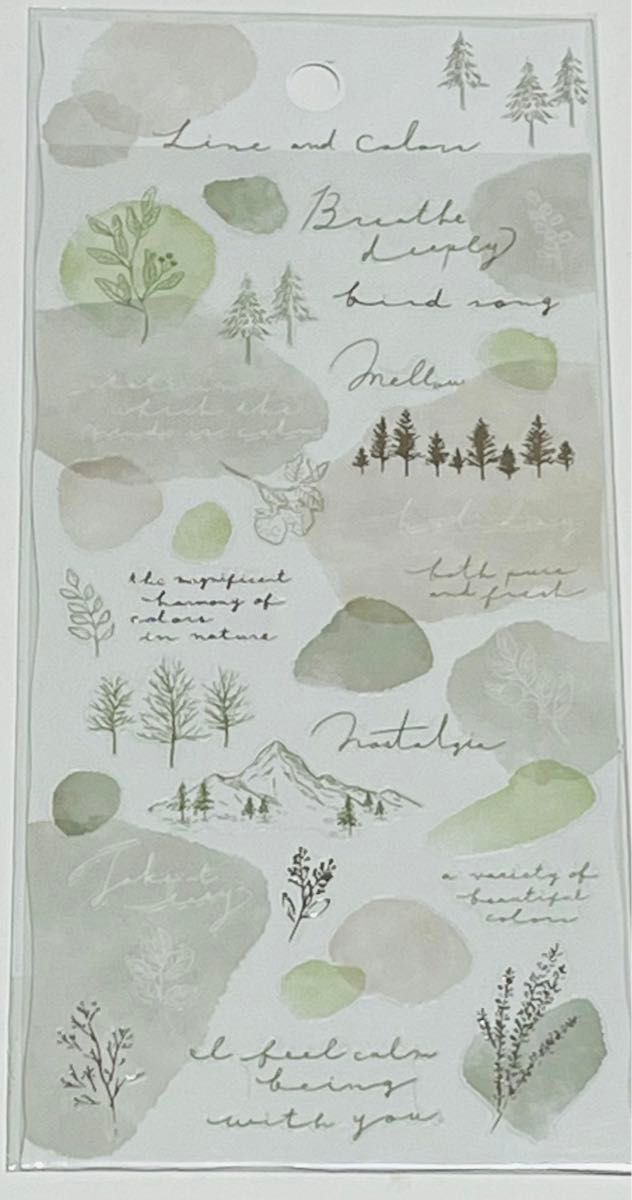 Line and colors
Breathe
deeply
bird song
Mellow
which the
holiday
both pure
and fresh
the magnificent
harmony of
colors
in nature
Nostalgia
Take it
easy
a variety of
beautiful
colors
I feel calm
being
with you.